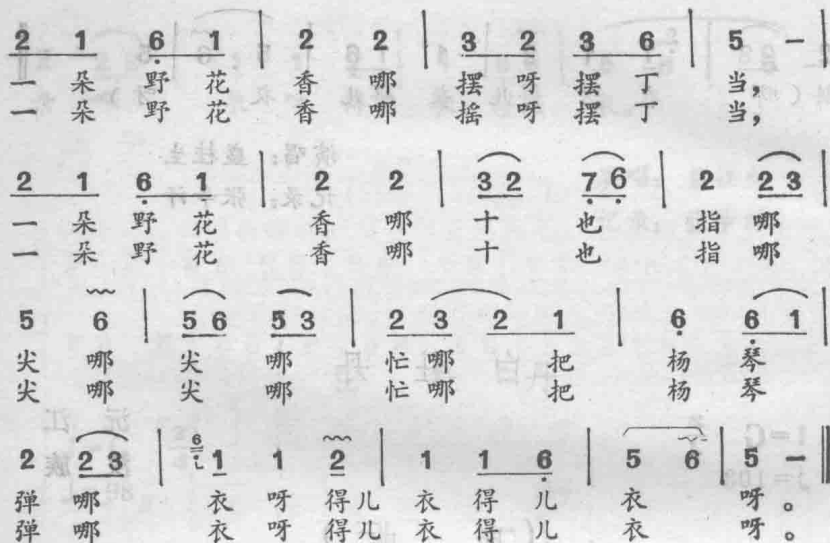 2 1 6̣ 1 | 2 2 | 3 2 3 6 | 5 — |
一 朵 野 花 香 哪 摆 呀 摆 丁 当,
一 朵 野 花 香 哪 摇 呀 摆 丁 当,
2 1 6̣ 1 | 2 2 | 3 2 7̣ 6̣ | 2 2 3
一 朵 野 花 香 哪 十 也 指 哪
一 朵 野 花 香 哪 十 也 指 哪
5 6 | 5 6 5 3 | 2 3 2 1 | 6̣ 6̣ 1
尖 哪 尖 哪 忙 哪 把 杨 琴
尖 哪 尖 哪 忙 哪 把 杨 琴
2 2 3 | 6̣ 1 1 2 | 1 1 6̣ | 5 6 | 5 — ‖
弹 哪 衣 呀 得 儿 衣 得 儿 衣 呀 。
弹 哪 衣 呀 得 儿 衣 得 儿 衣 呀 。